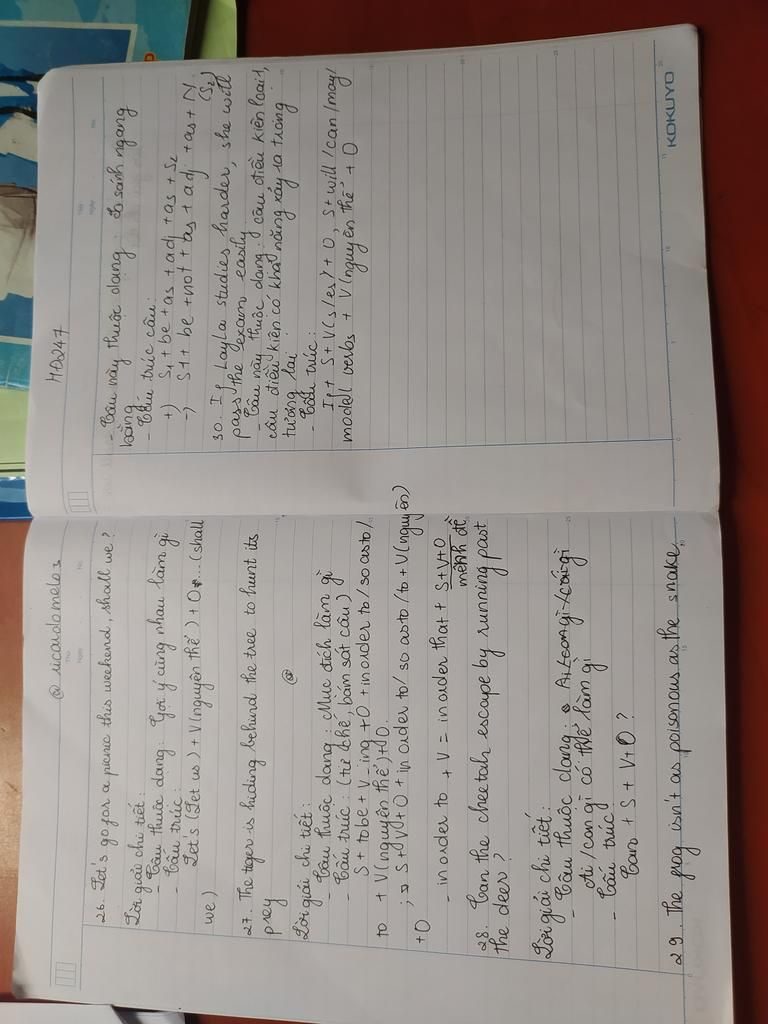 @ricardomelos
26. Let's go for a picnic this weekend, shall we?
Lời giải chi tiết:
- Câu thuộc dạng: Gợi ý cùng nhau làm gì
- Cấu trúc:
Let's (Let us) + V(nguyên thể) + O... (shall
we)
27. The tiger is hiding behind the tree to hunt its
prey
@
Lời giải chi tiết:
- Câu thuộc dạng: Mục đích làm gì
- Cấu trúc: (tự chế, bám sát câu)
S + to be + V-ing + O + in order to / so as to /
to + V(nguyên thể) + O.
; S + V + O + in order to / so as to / to + V(nguyên)
+ O
- in order to + V = in order that + S+V+O
mệnh đề
28. Can the cheetah escape by running past
the deer?
Lời giải chi tiết:
- Câu thuộc dạng: Ai/con gì/cái gì
ai/con gì có thể làm gì
- Cấu trúc:
Can + S + V + O?
29. The frog isn't as poisonous as the snake
HĐ247
- Câu này thuộc dạng: So sánh ngang
bằng
- Cấu trúc câu:
+) S1 + be + as + adj + as + S2
-) S1 + be + not + as + adj + as + N
(S2)
30. If Layla studies harder, she will
pass the exam easily
- Câu này thuộc dạng: câu điều kiện loại 1,
câu điều kiện có khả năng xảy ra trong
tương lai
- Cấu trúc:
If + S + V(s/es) + O, S + will/can/may/
model verbs + V(nguyên thể) + O
KOKUYO